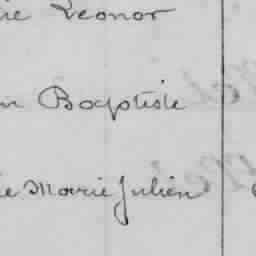 ie Leonor
n Baptiste
ie Marie Julien